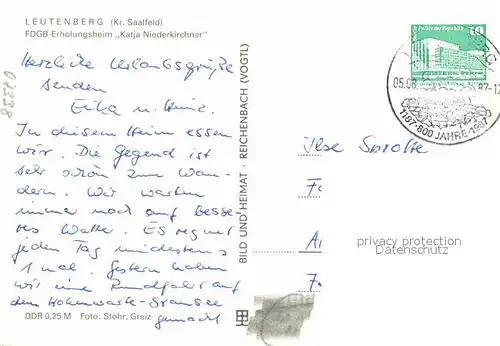 LEUTENBERG (Kr. Saalfeld)
FDGB-Erholungsheim „Katja Niederkirchner"
Herzliche Urlaubsgrüße
senden
Erika u. Heinz.
In diesem Heim essen
wir. Die Gegend ist
sehr schön zum Wan-
dern. Wir warten
immer noch auf besse-
res Wetter. Es regnet
jeden Tag mindestens
1 mal. Gestern haben
wir eine Rundfahrt auf
dem Hohenwarte-Stausee
gemacht
DDR 0,25 M Foto: Stöhr, Greiz
BILD UND HEIMAT · REICHENBACH (VOGTL)
10
05.08.
87-12
1187-800 JAHRE-1987
Ilse Sprotte
privacy protection
Datenschutz